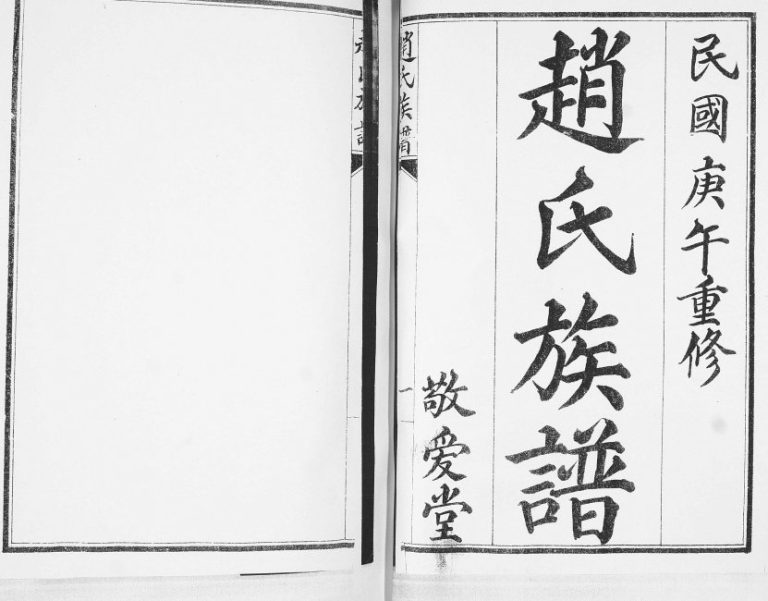 民國庚午重修
趙氏族譜
敬爱堂
趙氏族譜
一
趙氏族譜